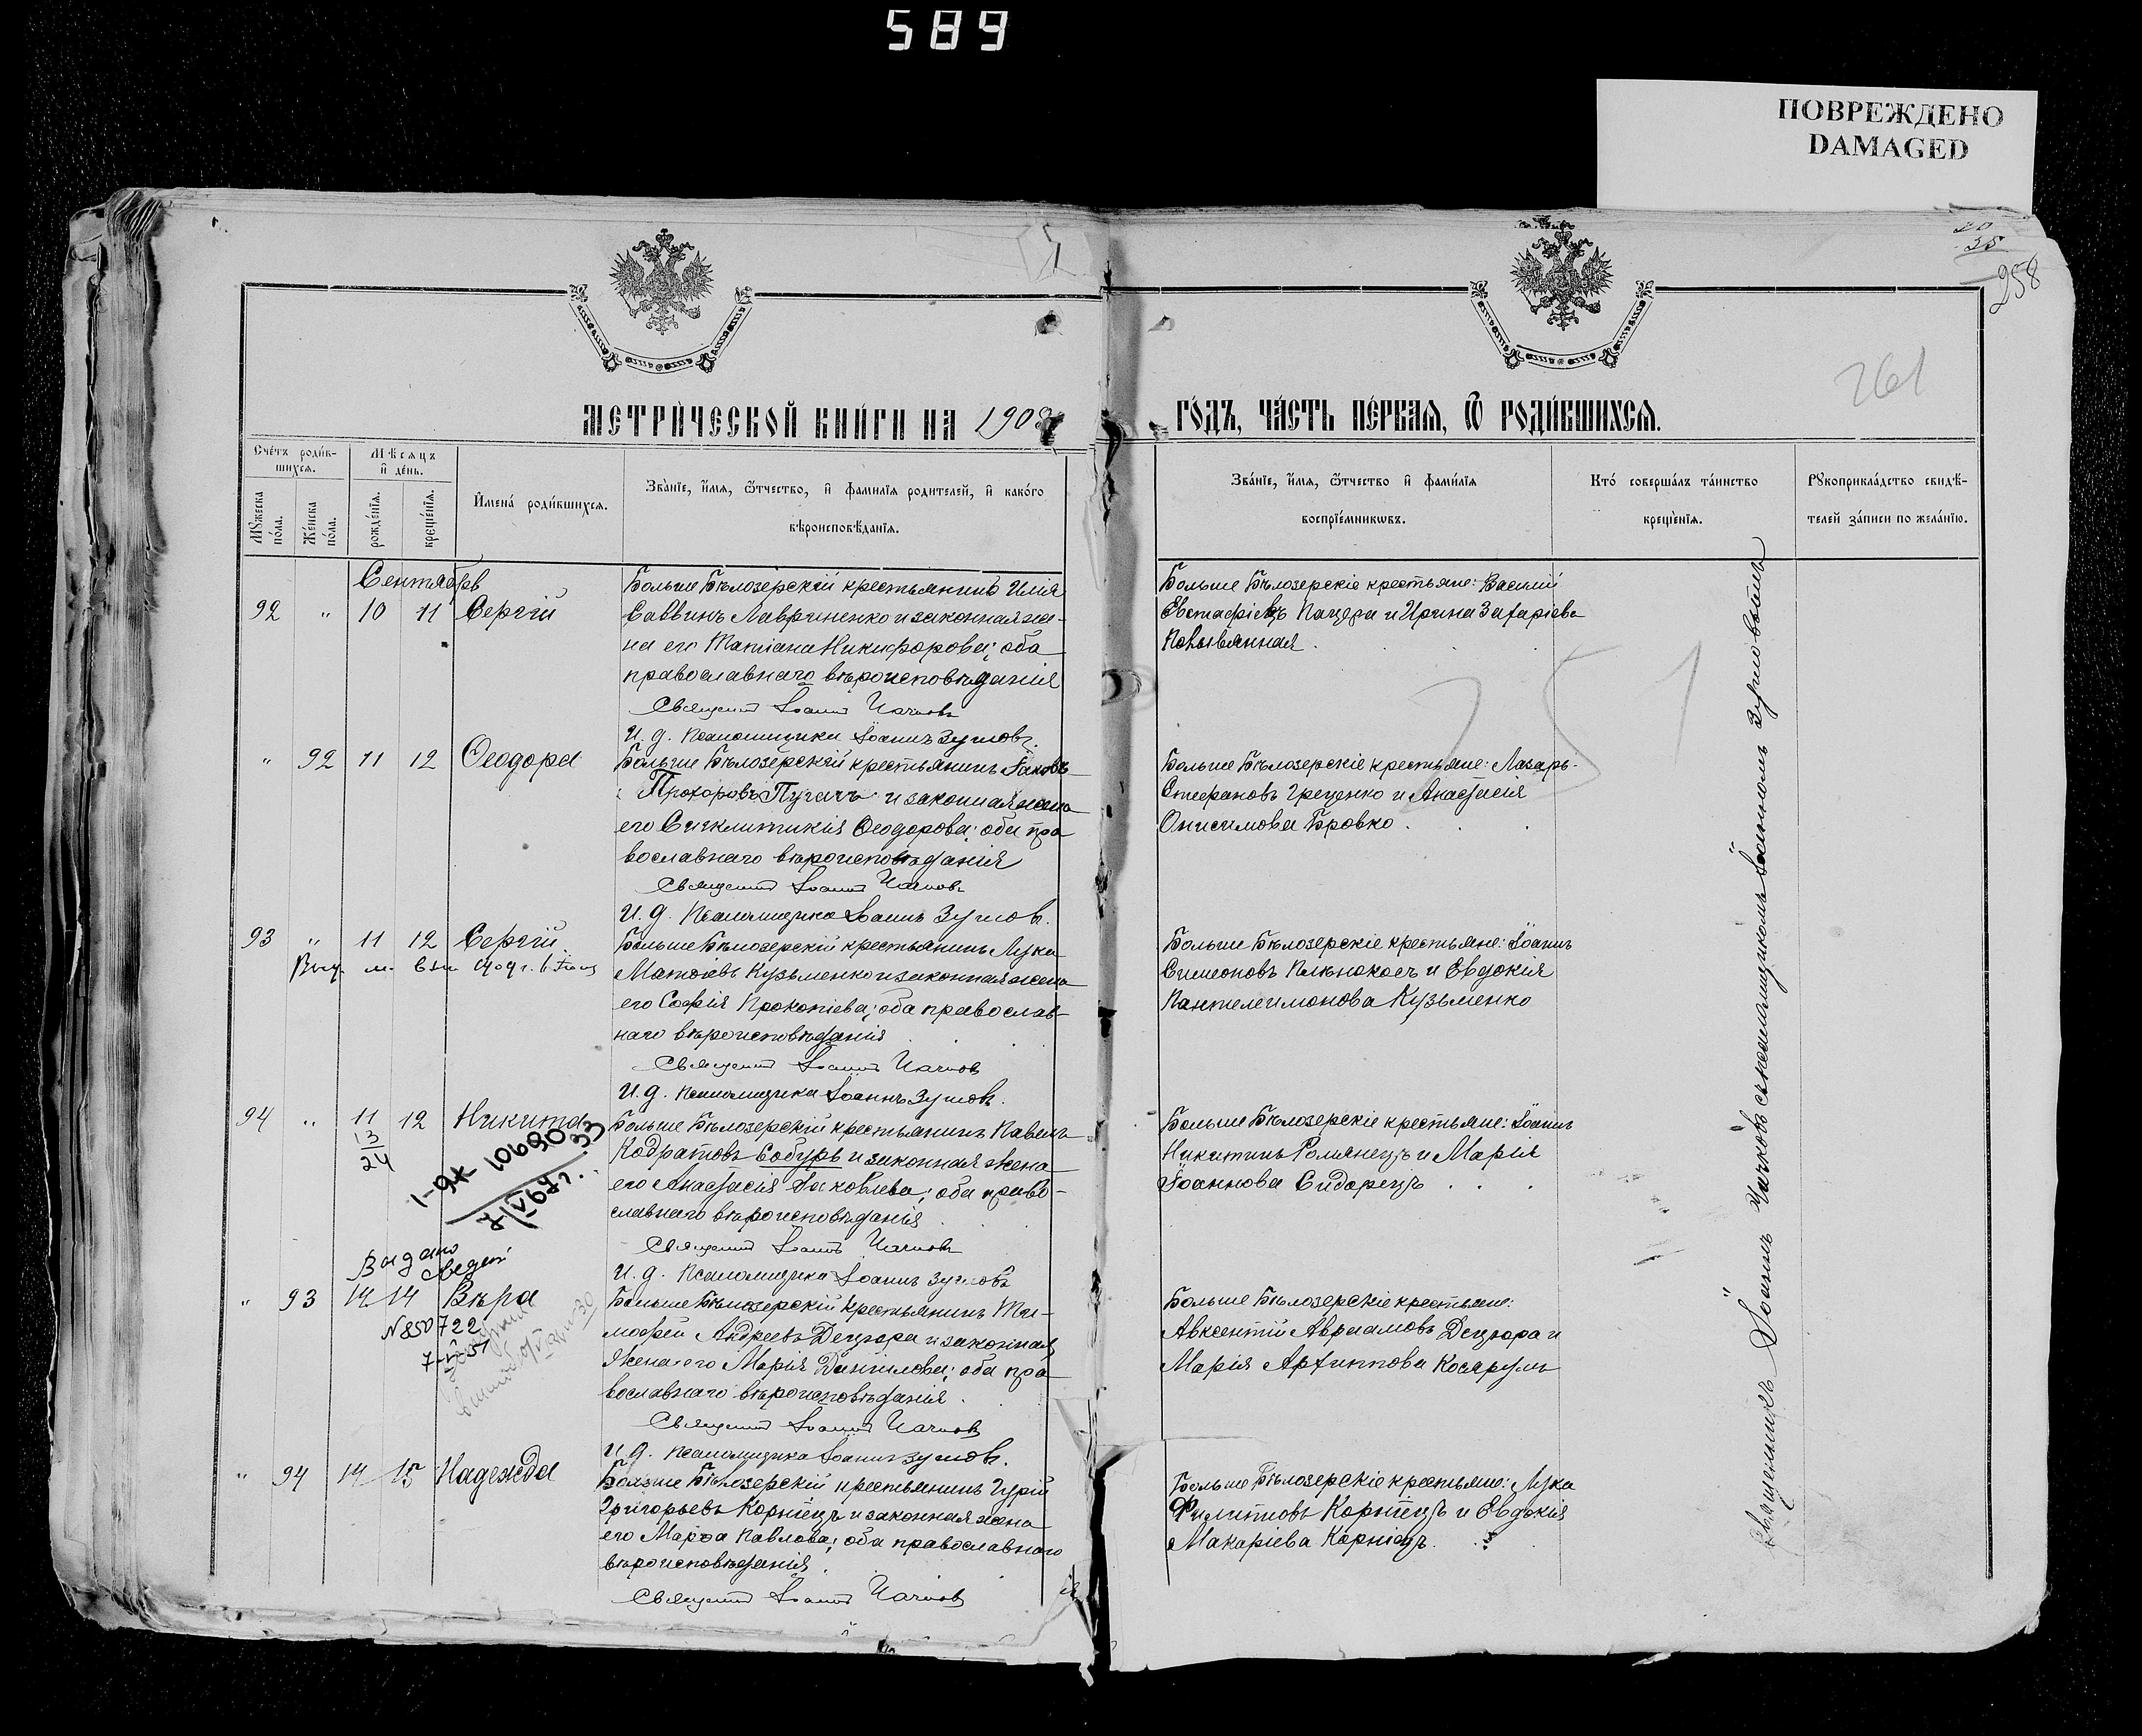 589
ПОВРЕЖДЕНО
DAMAGED
35
958
261
МЕТРИЧЕСКОЙ КНИГИ НА 1908
ГОДЪ, ЧАСТЬ ПЕРВАЯ, Ѿ РОДИВШИХСЯ.
Счетъ родив-
шихся.
Мѣсяцъ
и день.
Мужеска
пола.
Женска
пола.
рожденія.
крещенія.
Имена родившихся.
Званіе, имя, ѿтчество, и фамилія родителей, и какого
вѣроисповѣданія.
Званіе, имя, ѿтчество и фамилія
воспріемниковъ.
Кто совершалъ таинство
крещенія.
Рукоприкладство свидѣ-
телей записи по желанію.
Сентябрь
92 " 10 11 Сергій
Больше Бѣлозерскій крестьянинъ Илія
Саввинъ Лавриненко и законная же-
на его Татіана Никифорова; оба
православнаго вѣроисповѣданія
Священникъ Іоаннъ
И. д. Псаломщика Іоаннъ
Больше Бѣлозерскіе крестьяне: Василій
Евстафіевъ Пацера и Ирина Захаріева
" 92 11 12 Ѳеодора
Больше Бѣлозерскій крестьянинъ Іаковъ
Прохоровъ Пугачъ и законная жена
его Сигклитикія Ѳеодорова; оба пра
вославнаго вѣроисповѣданія
Священникъ Іоаннъ
И. д. Псаломщика Іоаннъ
Больше Бѣлозерскіе крестьяне: Лазарь
Стефановъ Греценко и Анастасія
Онисимова Бровко.
93 " 11 12 Сергій.
Больше Бѣлозерскій крестьянинъ Лука
Матѳіевъ Кузьменко и законная жена
его Софія Прокопіева; оба православ-
наго вѣроисповѣданія
Священникъ Іоаннъ
И. д. Псаломщика Іоаннъ
Больше Бѣлозерскіе крестьяне: Іоаннъ
Симеоновъ и Евдокія
Пантелеимонова Кузьменко
94 " 11 12 Никита
13
24
1-ЯХ 106909
7/VI 67г.
Больше Бѣлозерскій крестьянинъ Павелъ
Кодратовъ Собуръ и законная жена
его Анастасія Іаковлева; оба право-
славнаго вѣроисповѣданія
Священникъ Іоаннъ
И. д. Псаломщика Іоаннъ
Больше Бѣлозерскіе крестьяне: Іоаннъ
Никитинъ Романецъ и Марія
Іоаннова Сидорецъ
" 93 14 14 Вѣра
N850722
Больше Бѣлозерскій крестьянинъ Ти-
моѳей Андреевъ Децюра и законная
жена его Марія Даніилова; оба пра
вославнаго вѣроисповѣданія.
Священникъ Іоаннъ
И. д. Псаломщика Іоаннъ
Больше Бѣлозерскіе крестьяне:
Авксентій Авраамовъ Децюра и
Марія Архиппова
" 94 14 15 Надежда
Больше Бѣлозерскій крестьянинъ Гурій
Григорьевъ Корніецъ и законная жена
его Марѳа Павлова; оба православнаго
вѣроисповѣданія.
Священникъ Іоаннъ
Больше Бѣлозерскіе крестьяне: Лука
Филипповъ Корніецъ и Евдокія
Макаріева Корніецъ.
Священникъ Іоаннъ съ псаломщикомъ Іоанномъ
251